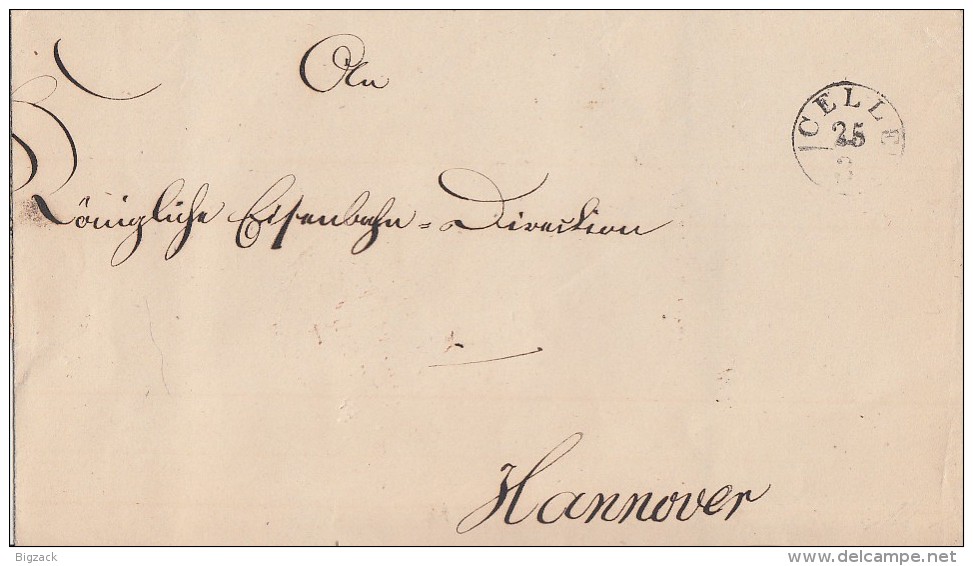 An
CELLE
25
3
Königliche Eisenbahn=Direction
Hannover
Bigzack
www.delcampe.net